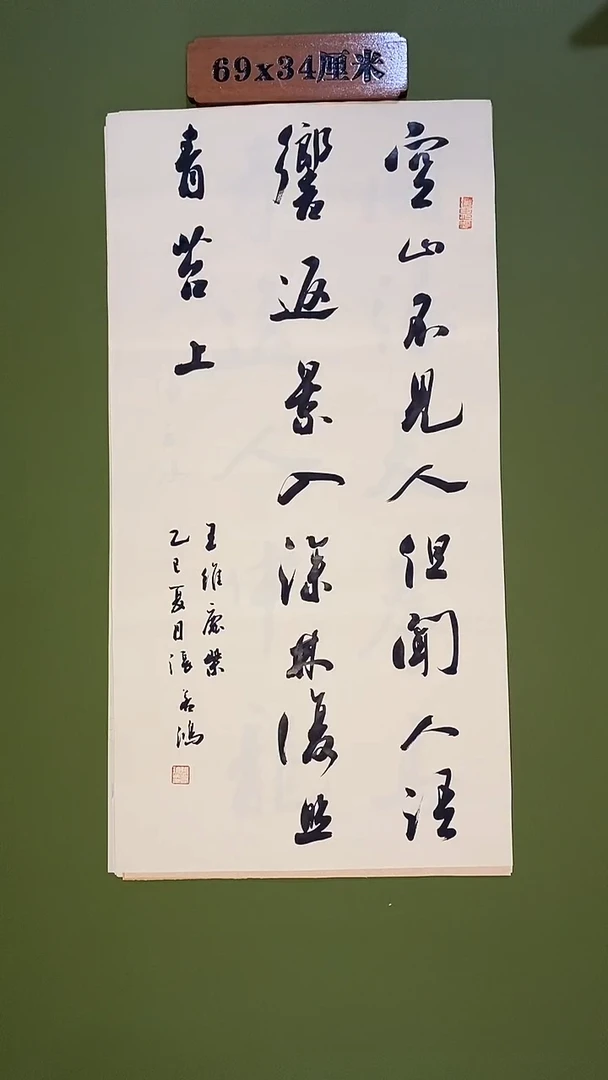 69x34厘米
空山不見人但聞人語
響返景入深林復照
青苔上
王維鹿柴
乙巳夏日張